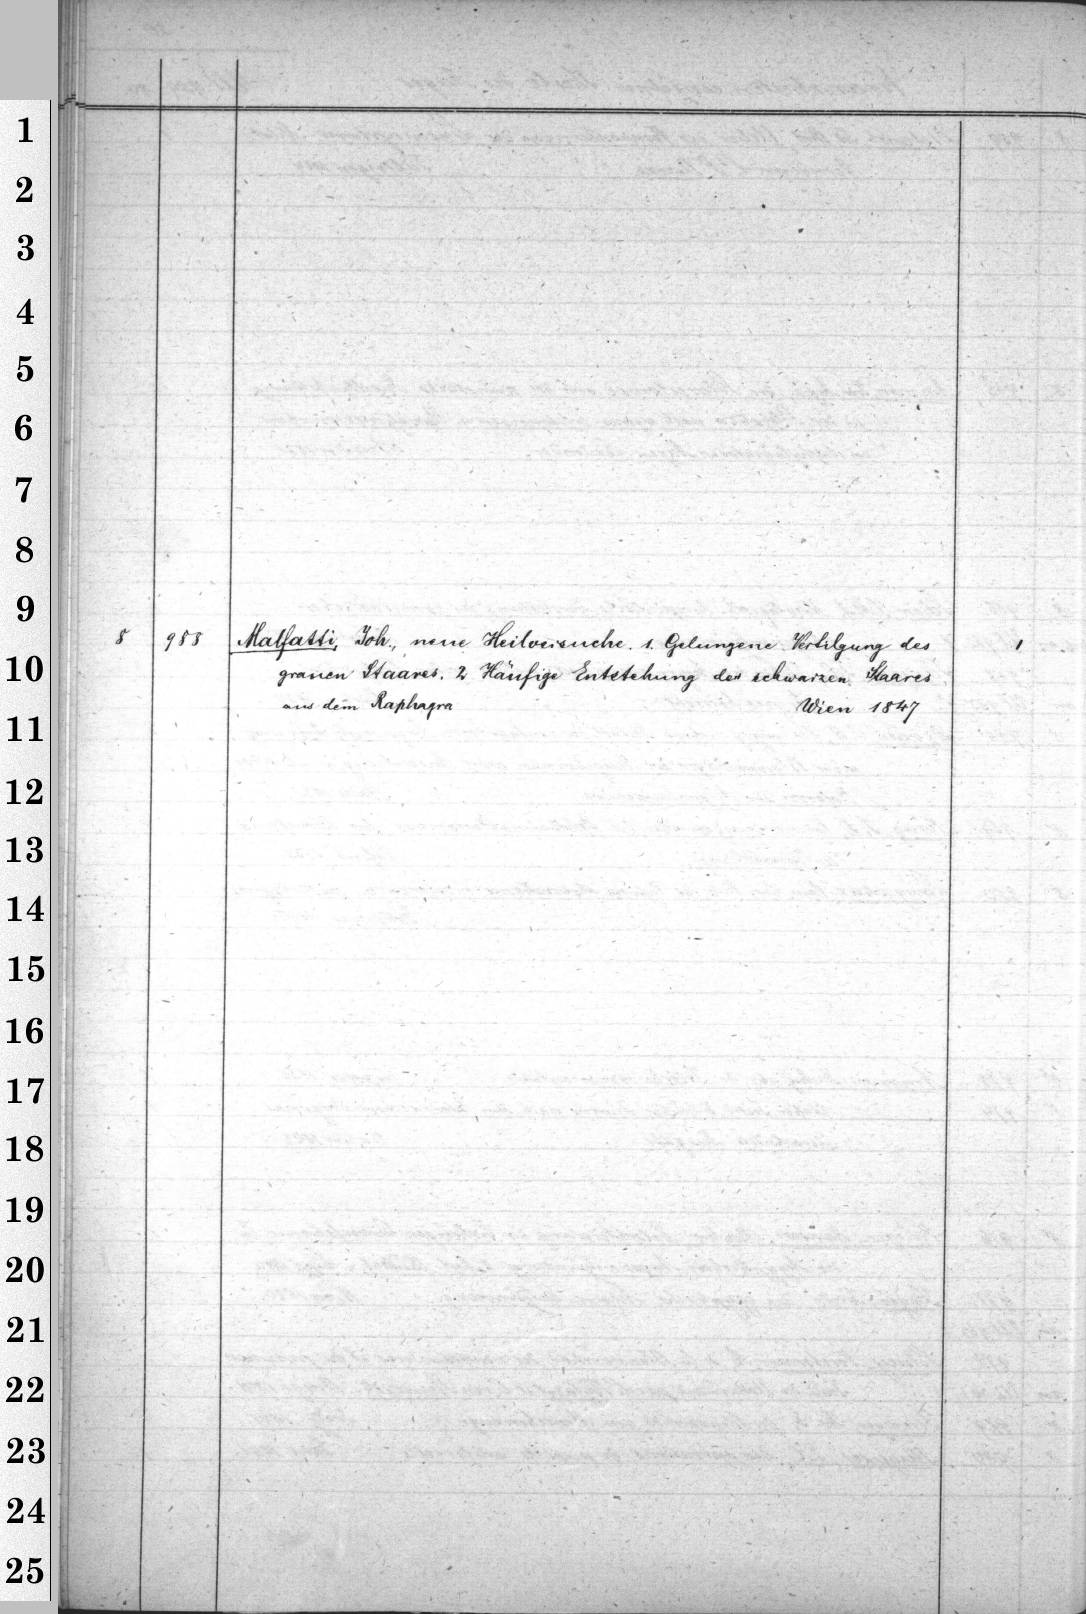 1
2
3
4
5
6
7
8
9
8 983 Malfatti, Joh., neue Heilversuche. 1. Gelungene Vertilgung des 1
10
grauen Staares. 2 Häufige Entstehung des schwarzen Staares
aus dem Raphagra Wien 1847
11
12
13
14
15
16
17
18
19
20
21
22
23
24
25